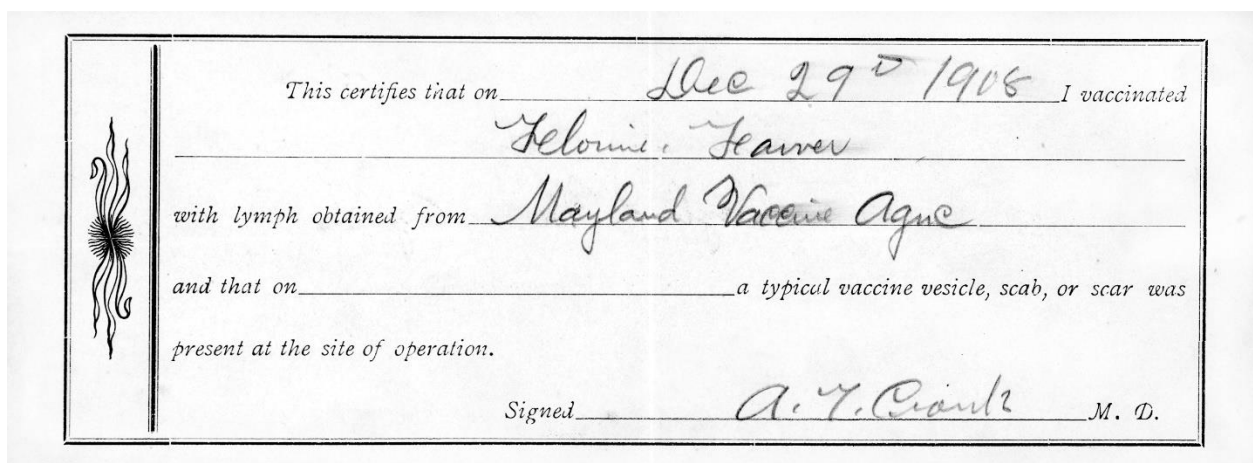 This certifies that on Dec 29th 1908 I vaccinated
with lymph obtained from Mayland Vaccine Agnc
and that on a typical vaccine vesicle, scab, or scar was
present at the site of operation.
Signed A. M. D.